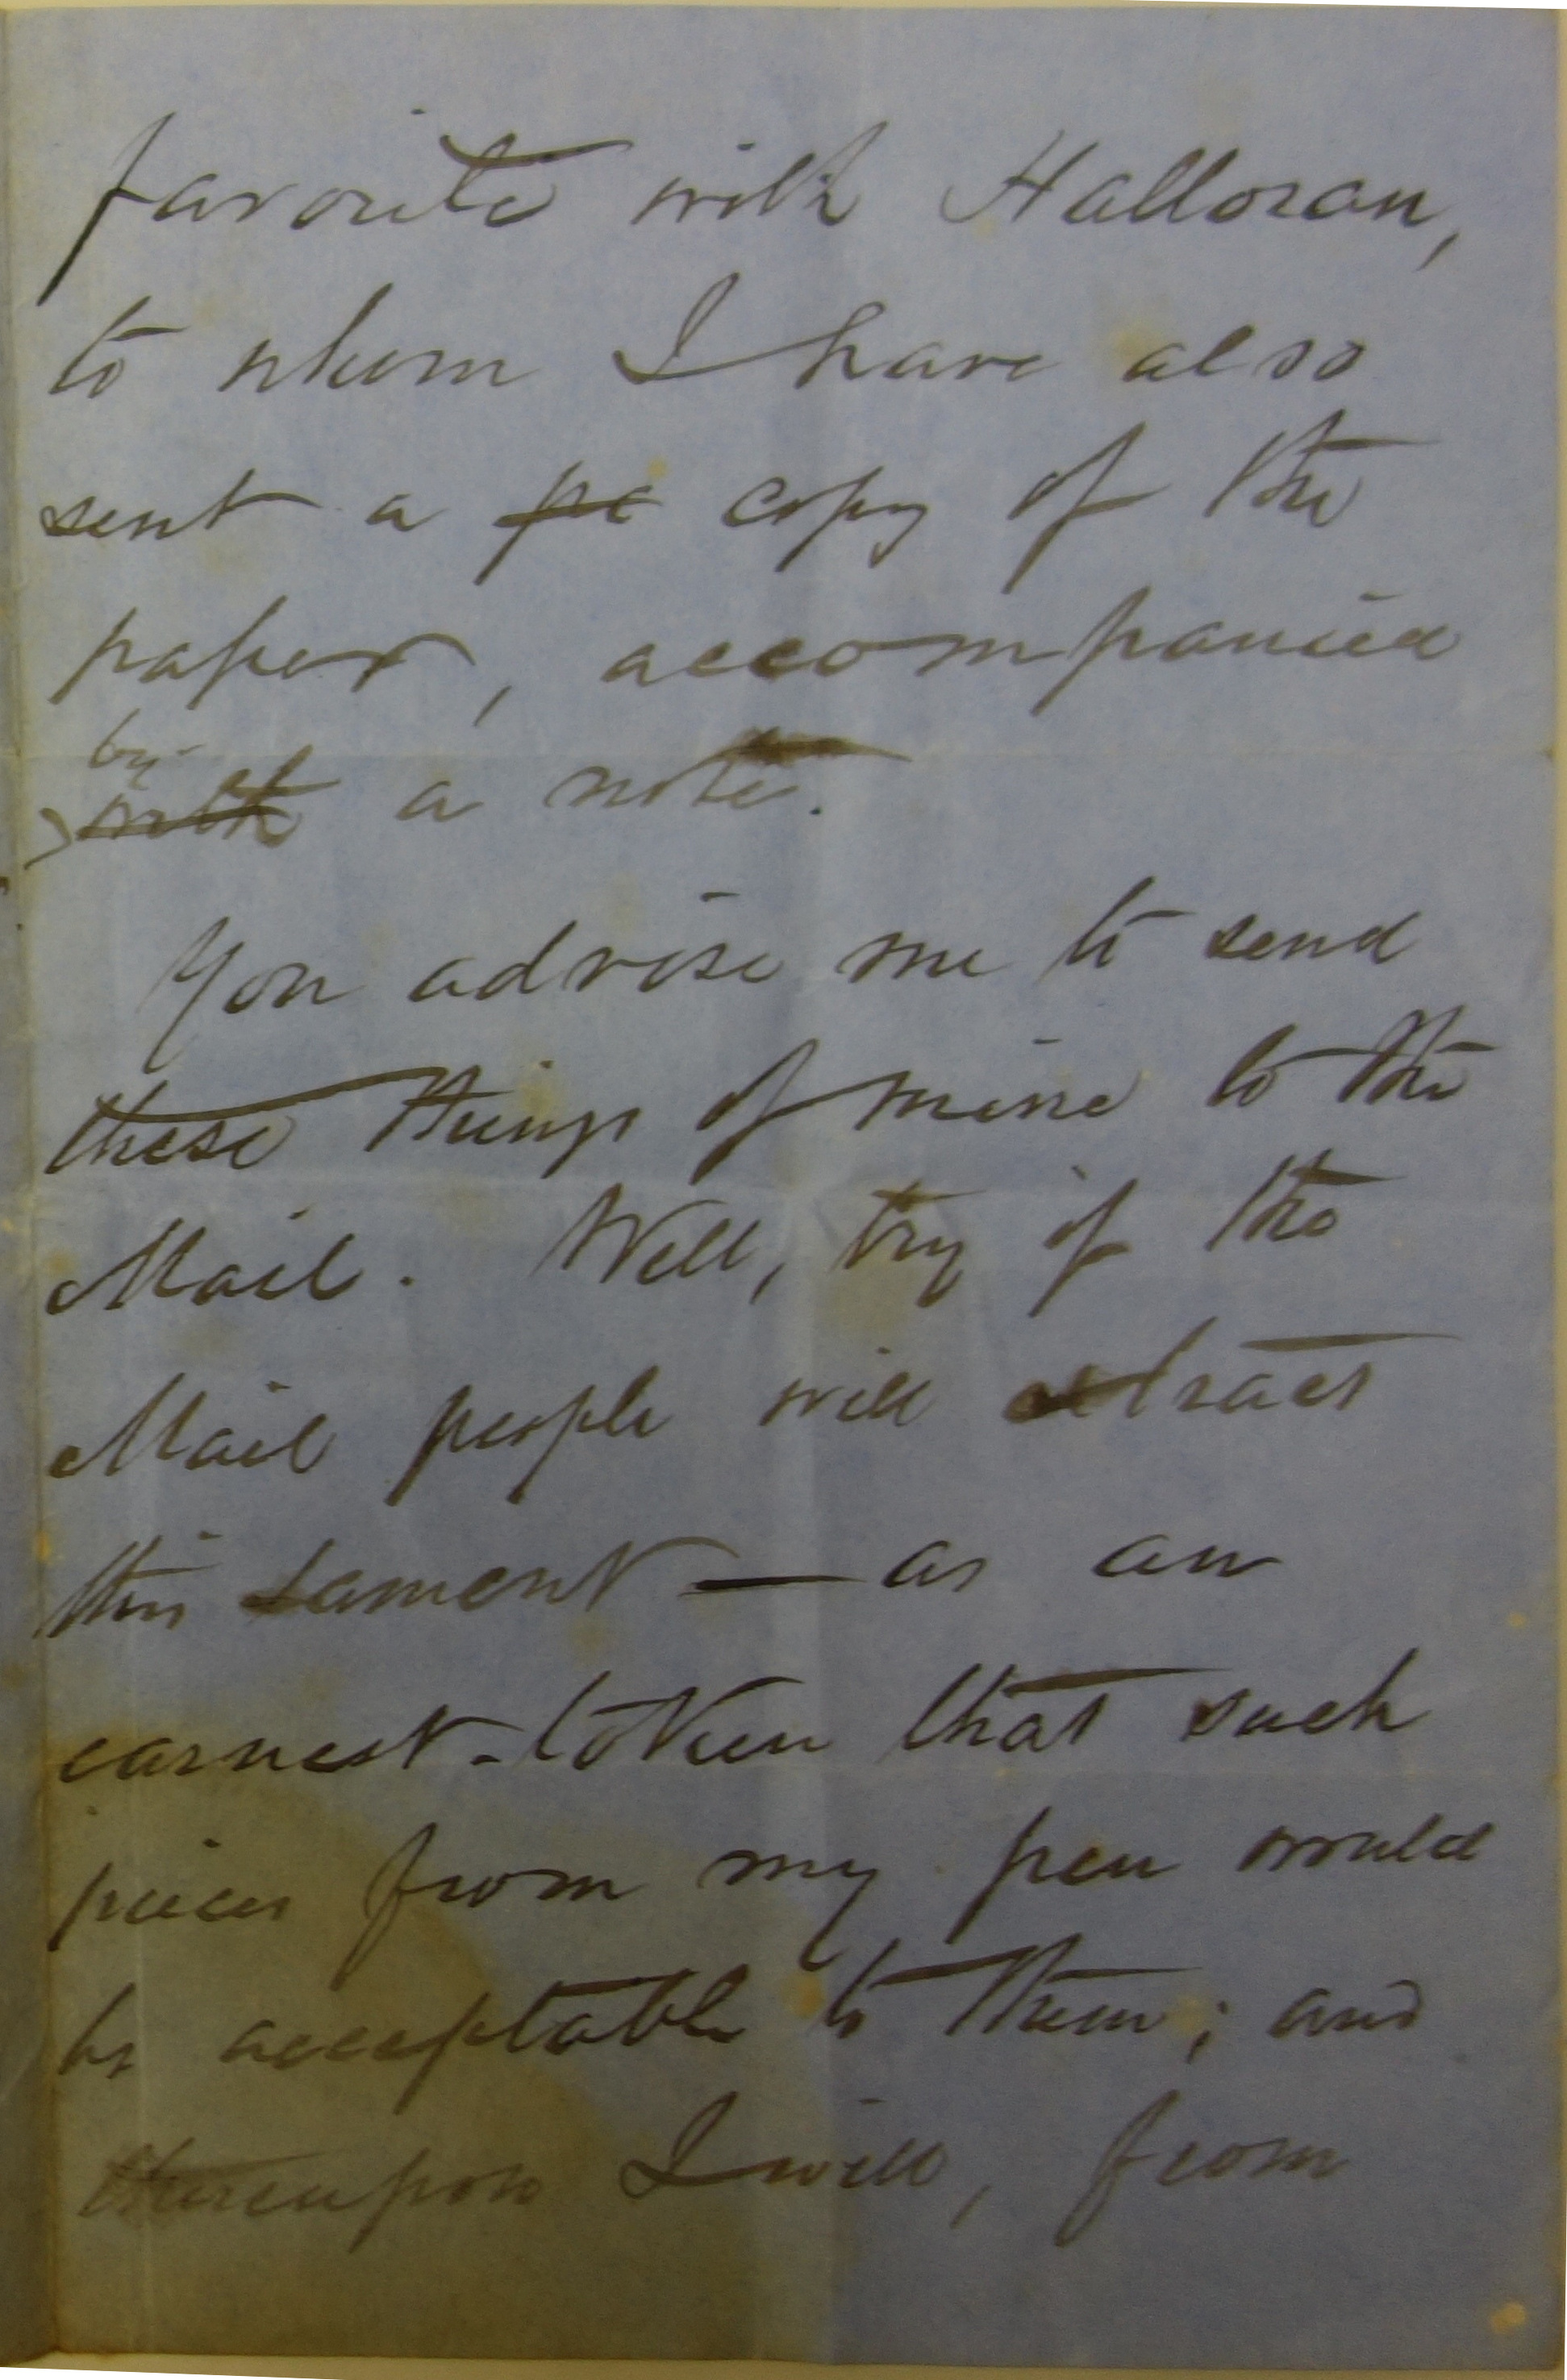 favorite with Halloran,
to whom I have also
sent a pe copy of the
paper, accompanied
by
with a note.
You advise me to send
these things of mine to the
Mail. Well, try if the
Mail people will extract
this Lament — as an
earnest-token that such
pieces from my pen would
be acceptable to them; and
thereupon I will, from